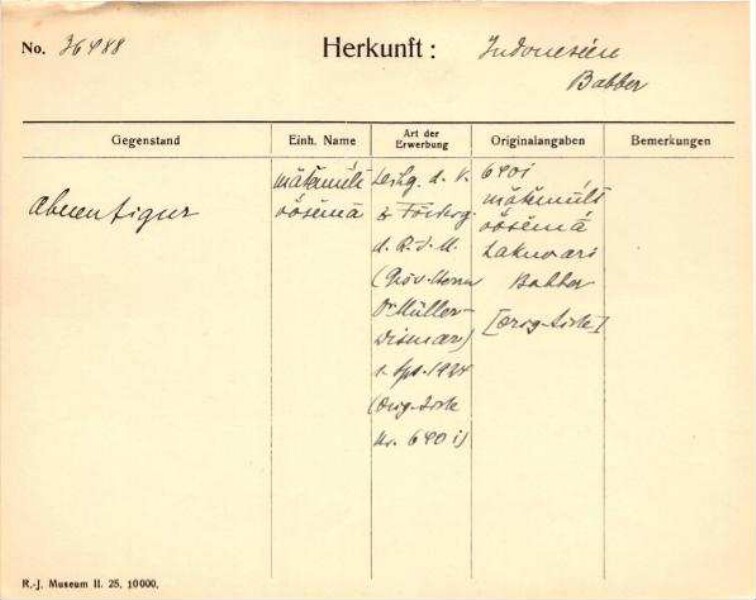 No. 36488 Herkunft: Indonesien
Babber
Gegenstand Einh. Name Art der Erwerbung Originalangaben Bemerkungen
Ahnenfigur
mātĕmúli
öösĕmā
Leihg. d. V.
z. Förderg.
d. R.-J.-M.
Dr Müller-
Wismar)
1. Sept. 1924
(Orig.-Liste
Nr. 640i)
640i
mātĕmúli
öösĕmā
Babber
[Orig-Liste]
R.-J. Museum II. 25. 10000.